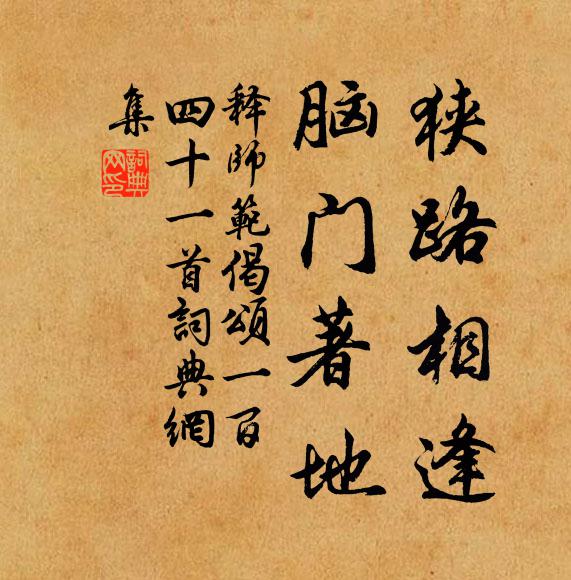 狭路相逢
脑门著地
释师範偈頌一百
四十一首詞典網
集
詞典网印